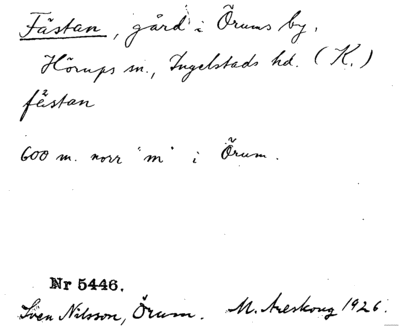 Fästan, gård i Örums by,
Hörups sn., Ingelstads hd. (K.)
fästan
600 m. norr "m" i Örum.
Nr 5446.
Sven Nilsson, Örum. M. Areskoug 1926.